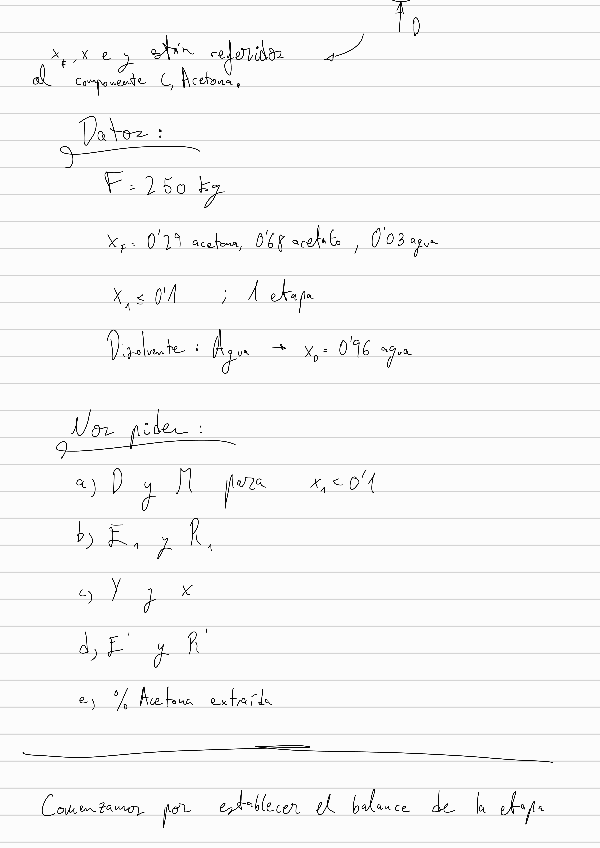 D
x_F, x e y están referidos
al componente C, Acetona.
Datos:
F = 250 kg
x_F = 0'29 acetona, 0'68 acetato, 0'03 agua
x_1 ≤ 0'1 ; 1 etapa
Disolvente: Agua → x_D = 0'96 agua
Nos piden:
a) D y M para x_1 < 0'1
b) E_1 y R_1
c) Y y x
d) E' y R'
e) % Acetona extraída
Comenzamos por establecer el balance de la etapa